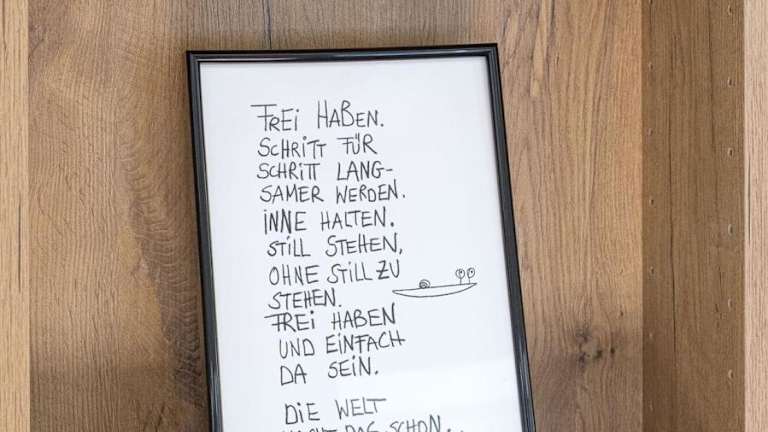 FREI HABEN.
SCHRITT FÜR
SCHRITT LANG-
SAMER WERDEN.
INNE HALTEN.
STILL STEHEN,
OHNE STILL ZU
STEHEN.
FREI HABEN
UND EINFACH
DA SEIN.
DIE WELT
MACHT DAS SCHON...